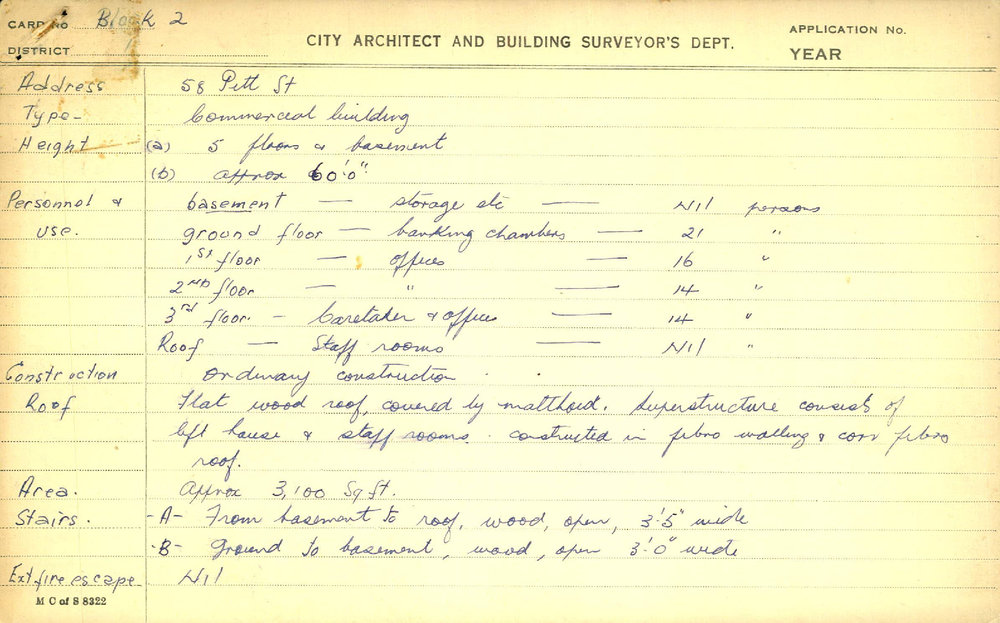 CARD No Block 2
DISTRICT
CITY ARCHITECT AND BUILDING SURVEYOR'S DEPT.
APPLICATION No.
YEAR
Address 58 Pitt St
Type- Commercial building
Height (a) 5 floors & basement
(b) approx 60'0"
Personnel & basement — storage etc — Nil persons
use. ground floor — banking chambers — 21 "
1st floor — offices — 16 "
2nd floor — " — 14 "
3rd floor. - Caretaker & offices — 14 "
Roof — Staff rooms — Nil "
Construction ordinary construction
Roof Flat wood roof, covered by malthoid. Superstructure consists of
lift house & staff rooms. constructed in fibro walling & corr fibro
roof.
Area. Approx 3,100 Sq ft.
Stairs. -A- From basement to roof, wood, open, 3'5" wide
-B- Ground to basement, wood, open 3'0" wide
Ext fire escape Nil
M C of S 8322